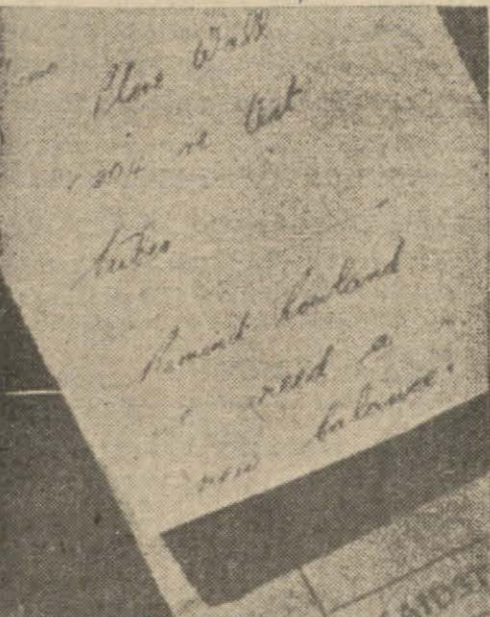 Phone Wall
re test
tubes
Remind Rowland
need a
new balance.